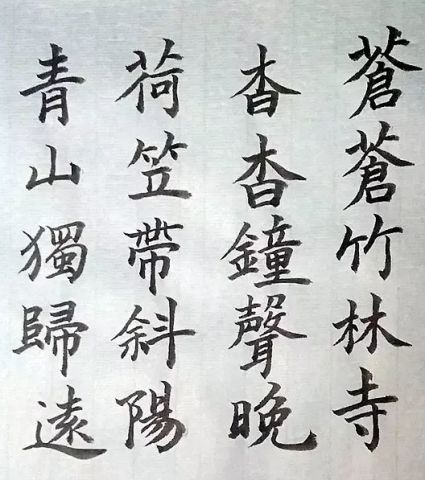 蒼蒼竹林寺
杳杳鐘聲晚
荷笠帶斜陽
青山獨歸遠